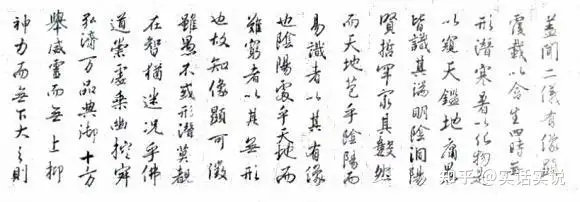 蓋聞二儀有像顯
覆載以含生四時無
形潛寒暑以化物是
以窺天鑑地庸愚
皆識其端明陰洞陽
賢哲罕窮其數然
而天地苞乎陰陽而
易識者以其有像
也陰陽處乎天地而
難窮者以其無形
也故知像顯可徵
雖愚不惑形潛莫覩
在智猶迷況乎佛
道崇虛乘幽控寂
弘濟万品典御十方
舉威靈而無上抑
神力而無下大之則
知乎 @实话实说